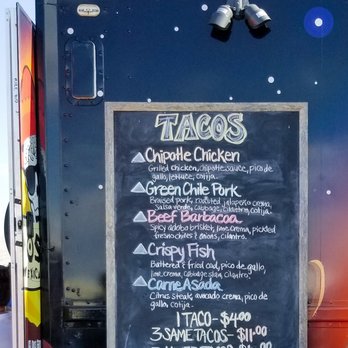 TACOS
Chipotle Chicken
Grilled chicken, chipotle sauce, pico de
gallo, lettuce, cotija.
Green Chile Pork
Braised pork, roasted jalapeño crema,
Salsa verde, cabbage, cilantro, cotija.
Beef Barbacoa
Spicy adobo brisket, lime crema, pickled
fresno chiles & onions, cilantro.
Crispy Fish
Battered & fried cod, pico de gallo,
lime crema, cabbage slaw, cilantro.
Carne Asada
Citrus steak, avocado crema, pico de
gallo, cotija.
1 TACO - $4.00
3 SAME TACOS - $11.00